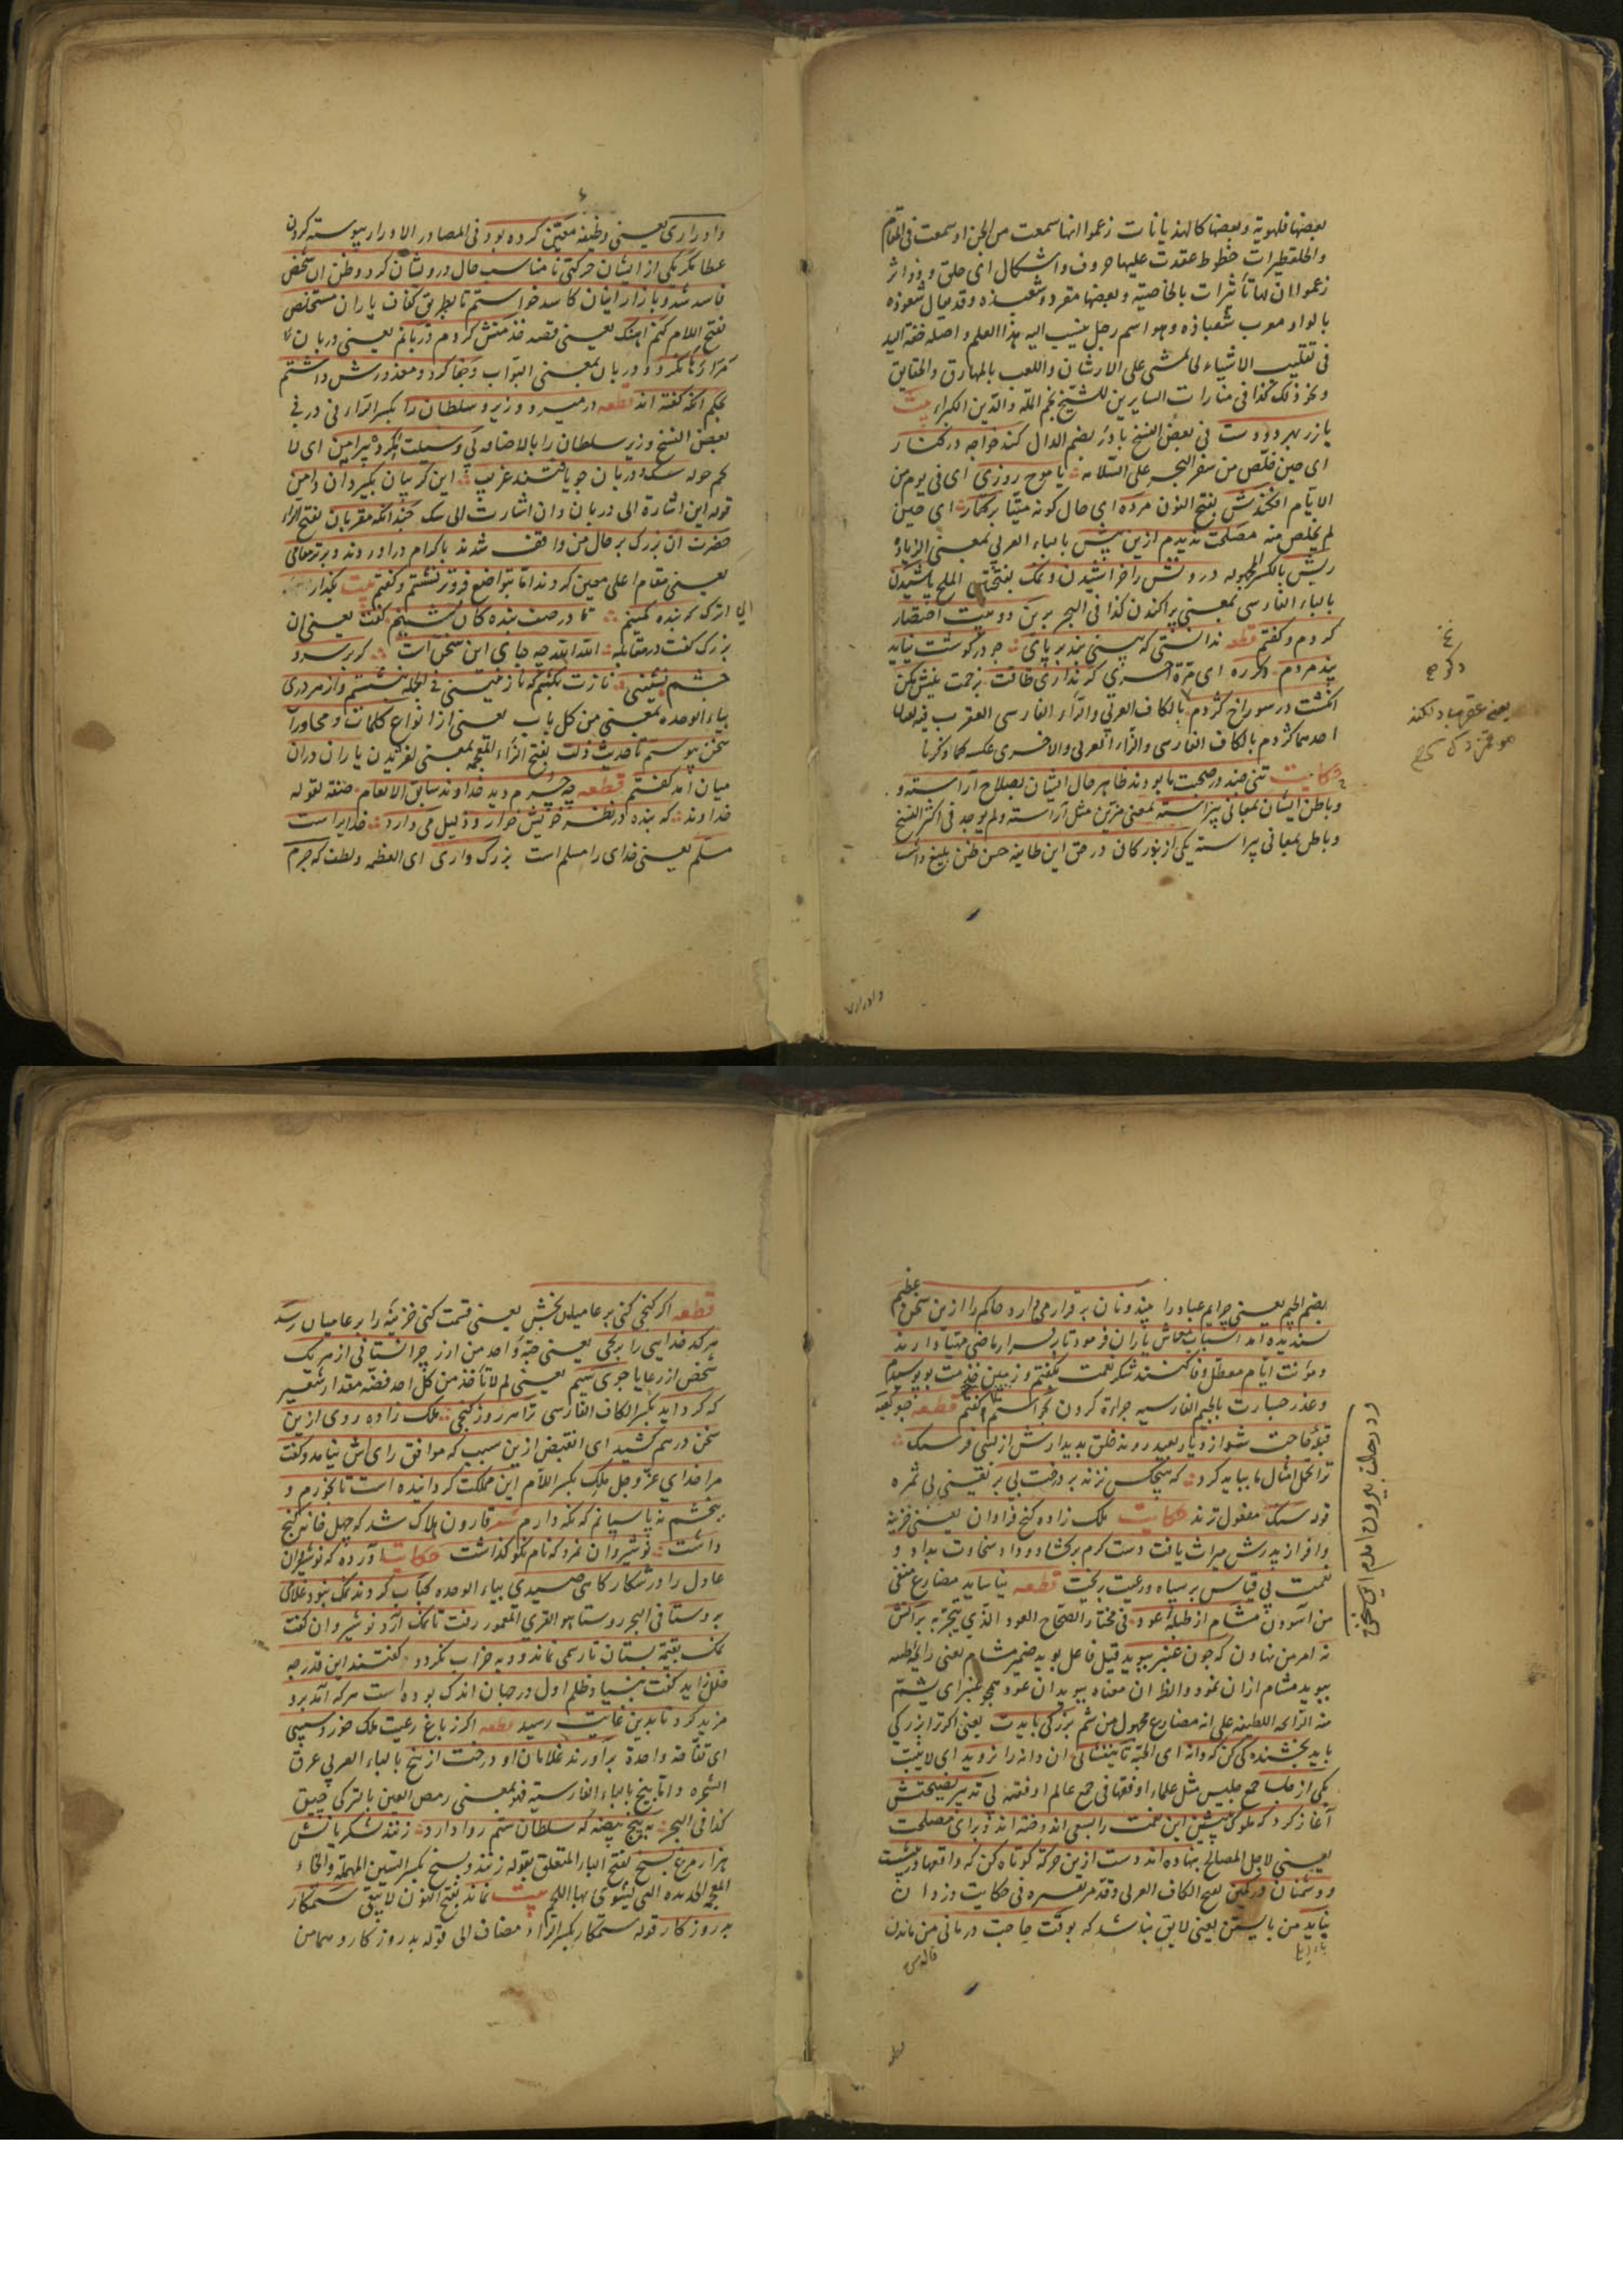 بعضها فلهوية وبعضها كالهذيانات زعموا انها سمعت من الجن او سمعت فى المنام
والحلقطيرات خطوط عقدت عليها حروف واشكال اى حلق ودوائر
زعموا ان لها تأثيرات بالخاصية وبعضها مقرء وشعبذه وقد يقال شعوذه
بالواو معرب شعباذه وهو اسم رجل ينسب اليه هذا العلم واصله خفة اليد
فى تقليب الاشياء كالمشى على الارشان واللعب بالمهارق والحقايق
ونحو ذلك كذا فى منارات السايرين للشيخ نجم الملة والدين الكبراء بيت
يا زر بهر دو دست فى بعض النسخ يا در بضم الدال كند خواجه در كنار
اى حين تخلص من سفر البحر على السلامه يا موج روزى اى فى يوم من
الايام افكندش بفتح النون مرده اى حال كونه ميتا بر كنار اى حين
لم يخلص منه مصلحت نديدم ازين بيش بالباء العربى بمعنى الزيادة
ريش بالكسر المجهوله درونش را خراشيدن ونمك بفتحتين الملح پاشيدن
بالباء الفارسى بمعنى پراكندن كذا فى البحر برين دو بيت اختصار
كردم وكفتم قطعه ندانستى كه بينى بند بر پاى چو در كوشت نيايد
پند مردم دكر ره اى مرة اخرى كر ندارى طاقت نيش مكن
انكشت در سوراخ كژدم بالكاف العربى والزاء الفارسى العقرب فيه لغتان
احدهما كژدم بالكاف الفارسى والزاء العربى والاخرى عكسه كما ذكرنا
حكايت تنى چند در صحبت ما بودند ظاهر حال ايشان بصلاح آراسته و
وباطن ايشان بمعانى پيراسته بمعنى مزين مثل آراسته ولم يوجد فى اكثر النسخ
وباطن بمعانى پيراسته يكى از بزركان در حق اين طايفه حسن ظن بليغ داشت
وادرارى
وادرارى يعنى وظيفه معين كرده بود فى المصادر الادرار پيوسته كردن
عطا مكر يكى از ايشان حركتى نامناسب حال درويشان كرد وظن ان شخص
فاسد شد وبازار اينان كاسد خواستم تا بطريق كفاف ياران مستخلص
بفتح اللام كنم اهنك يعنى قصد خدمتش كردم دربانم يعنى دربان
مرا رها نكرد ودربان بمعنى البواب وجفا كرد ومعذورش داشتم
بحكم انكه كفته اند قطعه در مير و وزير وسلطان را بكسر الراء فى در فى
بعض النسخ وزير سلطان را بالاضافه بى وسيلت مكرد پيرامن اى لا
تحم حوله سك ودربان چو يافتند غريب اين كريبان بكيرد ان دامن
قوله اين اشارة الى دربان وان اشارت الى سك چندانكه مقربان بفتح الراء
حضرت ان بزرك بر حال من واقف شدند باكرام در اوردند وبرتر مقامى
يعنى مقام اعلى معين كردند اما بتواضع فروتر نشستم وكفتم بيت بكذار
اى اترك كه بنده كمينم تا در صف بندكان نشينم كفت يعنى ان
بزرك كفت در مقابله الله الله چه جاى اين سخن است كر بر سر و
چشم نشينى نازت بكشم كه نازنينى فى الجمله نشستم واز هر درى
بياء الوحده بمعنى من كل باب يعنى از انواع كلمات ومحاورات
سخن پيوستم تا حديث زلت بفتح الزاء المعجمه بمعنى لغزيدن ياران دران
ميان امد كفتم قطعه چه جرم ديد خداوند سابق الانعام صفة لقوله
خداوند كه بنده در نظر خويش خوار وذليل مى دارد خدايراست
مسلم يعنى خداى را مسلم است بزركوارى اى العظمه ولطف كه جرم
بضم الجيم يعنى جرايم عباد را بيند ونان برقرار مى دارد حاكم را ازين سخن عظيم
پسنديده امد اسباب معاش ياران فرمود تا بر قرار ماضى مهيا دارند
ومؤنت ايام معطل وفا كنند شكر نعمت بكفتم وزمين خدمت ببوسيدم
وعذر جسارت بالجيم الفارسيه جراءة كردن بخواستم وكفتم قطعه چو كعبه
قبلۀ حاجت شد از ديار بعيد روند خلق بديدارش از بسى فرسنك
ترا تحمل امثال ما ببايد كرد كه هيچكس نزند بر درخت بى بر يعنى بى ثمره
قوله سنك مفعول نزند حكايت ملك زاده كنج فراوان يعنى خزينه
وافر از پدرش ميراث يافت دست كرم بركشاد وداد سخاوت بداد و
نعمت بى قياس بر سپاه ورعيت بريخت قطعه نياسايد مضارع منفى
من آسودن مشام از طبلۀ عود فى مختار الصحاح العود الذى يتبخر به بر آتش
نه امر من نهادن كه چون عنبر ببويد قيل فاعل بويد ضمير مشام يعنى رايحه لطيفه
ببويد مشام ازان عود والظ ان معناه ببويد ان عود همچو عنبر اى يشم
منه الرايحه اللطيفه على انه مضارع مجهول من شم بزركى بايدت يعنى اكر ترا بزركى
بايد بخشندكى كن كه دانه اى الحبة تا نيفشانى ان دانه را نرويد اى لا ينبت
يكى از جلسا جمع جليس مثل علماء او فقها فى جمع عالم او فقيه بى تدبير نصيحتش
آغاز كرد كه ملوك پيشين اين نعمت را بسعى اندوخته اند وبراى مصلحت
يعنى لاجل المصالح بنهاده اند دست ازين حركه كوتاه كن كه واقعها در پيشست
ودشمنان در كمين بفتح الكاف العربى وقد مر تفسيره فى حكايت دزدان
نبايد من بايستن يعنى لايق نباشد كه بوقت حاجت درمانى من ماندن
قطعه
قطعه اكر كنجى كنى بر عاميان بخش يعنى قسمت كنى خزينه را بر عاميان رسد
هر كدخدايى را برنجى يعنى حبة واحد من ارز چرا نستانى از هر يك
شخص از رعايا جوى سيم يعنى لم لا تأخذ من كل احد فضه مقدار شعير
كه كرد ايد بكسر الكاف الفارسى ترا هر روز كنجى ملك زاده روى ازين
سخن درهم كشيد اى انقبض ازين سبب كه موافق راى اش نيامد وكفت
مرا خداى عز وجل ملك بكسر اللام اين مملكت كردانيده است تا بخورم و
ببخشم نه پاسبانم كه نكه دارم شعر قارون هلاك شد كه چهل خانه كنج
داشت نوشيروان نمرد كه نام نكو كذاشت حكايت آورده كه نوشيروان
عادل را در شكاركاهى صيدى بياء الوحده كباب كردند نمك نبود غلامى
بروستا فى البحر روستا هو القرى المعمور رفت تا نمك آرد نوشيروان كفت
نمك بقيمة بستان تا رسمى نماند وديه خراب نكردد كفتند اين قدر چه
خلل زايد كفت بنياد ظلم اول در جهان اندك بوده است هر كه آمد برو
مزيد كرد تا بدين غايت رسيد قطعه اكر ز باغ رعيت ملك خورد سيبى
اى تفاحة واحدة برآورند غلامان او درخت از بيخ بالباء العربى عرق
الشجره واما پيخ بالباء الفارسية فهو بمعنى رمص العين بالتركى چپق
كذا فى البحر به پنج بيضه كه سلطان ستم روا دارد زنند لشكريانش
هزار مرغ بسيخ بفتح الباء المتعلق بقوله زنند وسيخ بكسر السين المهملة والخاء
المعجمه الحديده التى يشوى بها اللحم بيت نماند بفتح النون لا يبقى ستمكار
بد روزكار قوله ستمكار بكسر الراء مضاف الى قوله بد روزكار وهما من